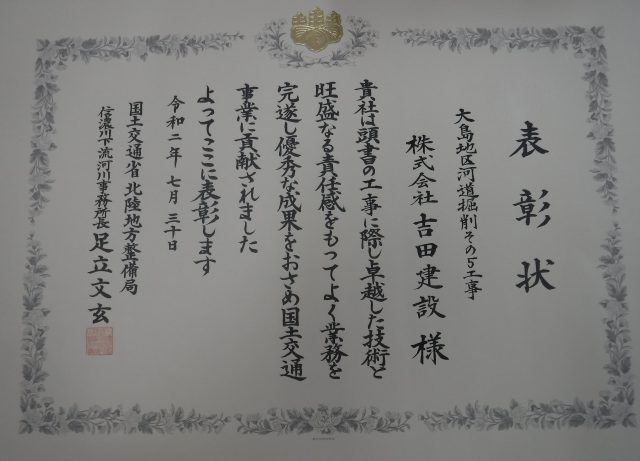 表彰状
大島地区河道掘削その5工事
株式会社 吉田建設 様
貴社は頭書の工事に際し卓越した技術と
旺盛なる責任感をもってよく業務を
完遂し優秀な成果をおさめ国土交通
事業に貢献されました
よってここに表彰します
令和二年 七月 三十日
国土交通省 北陸地方整備局
信濃川下流河川事務所長 足立文玄